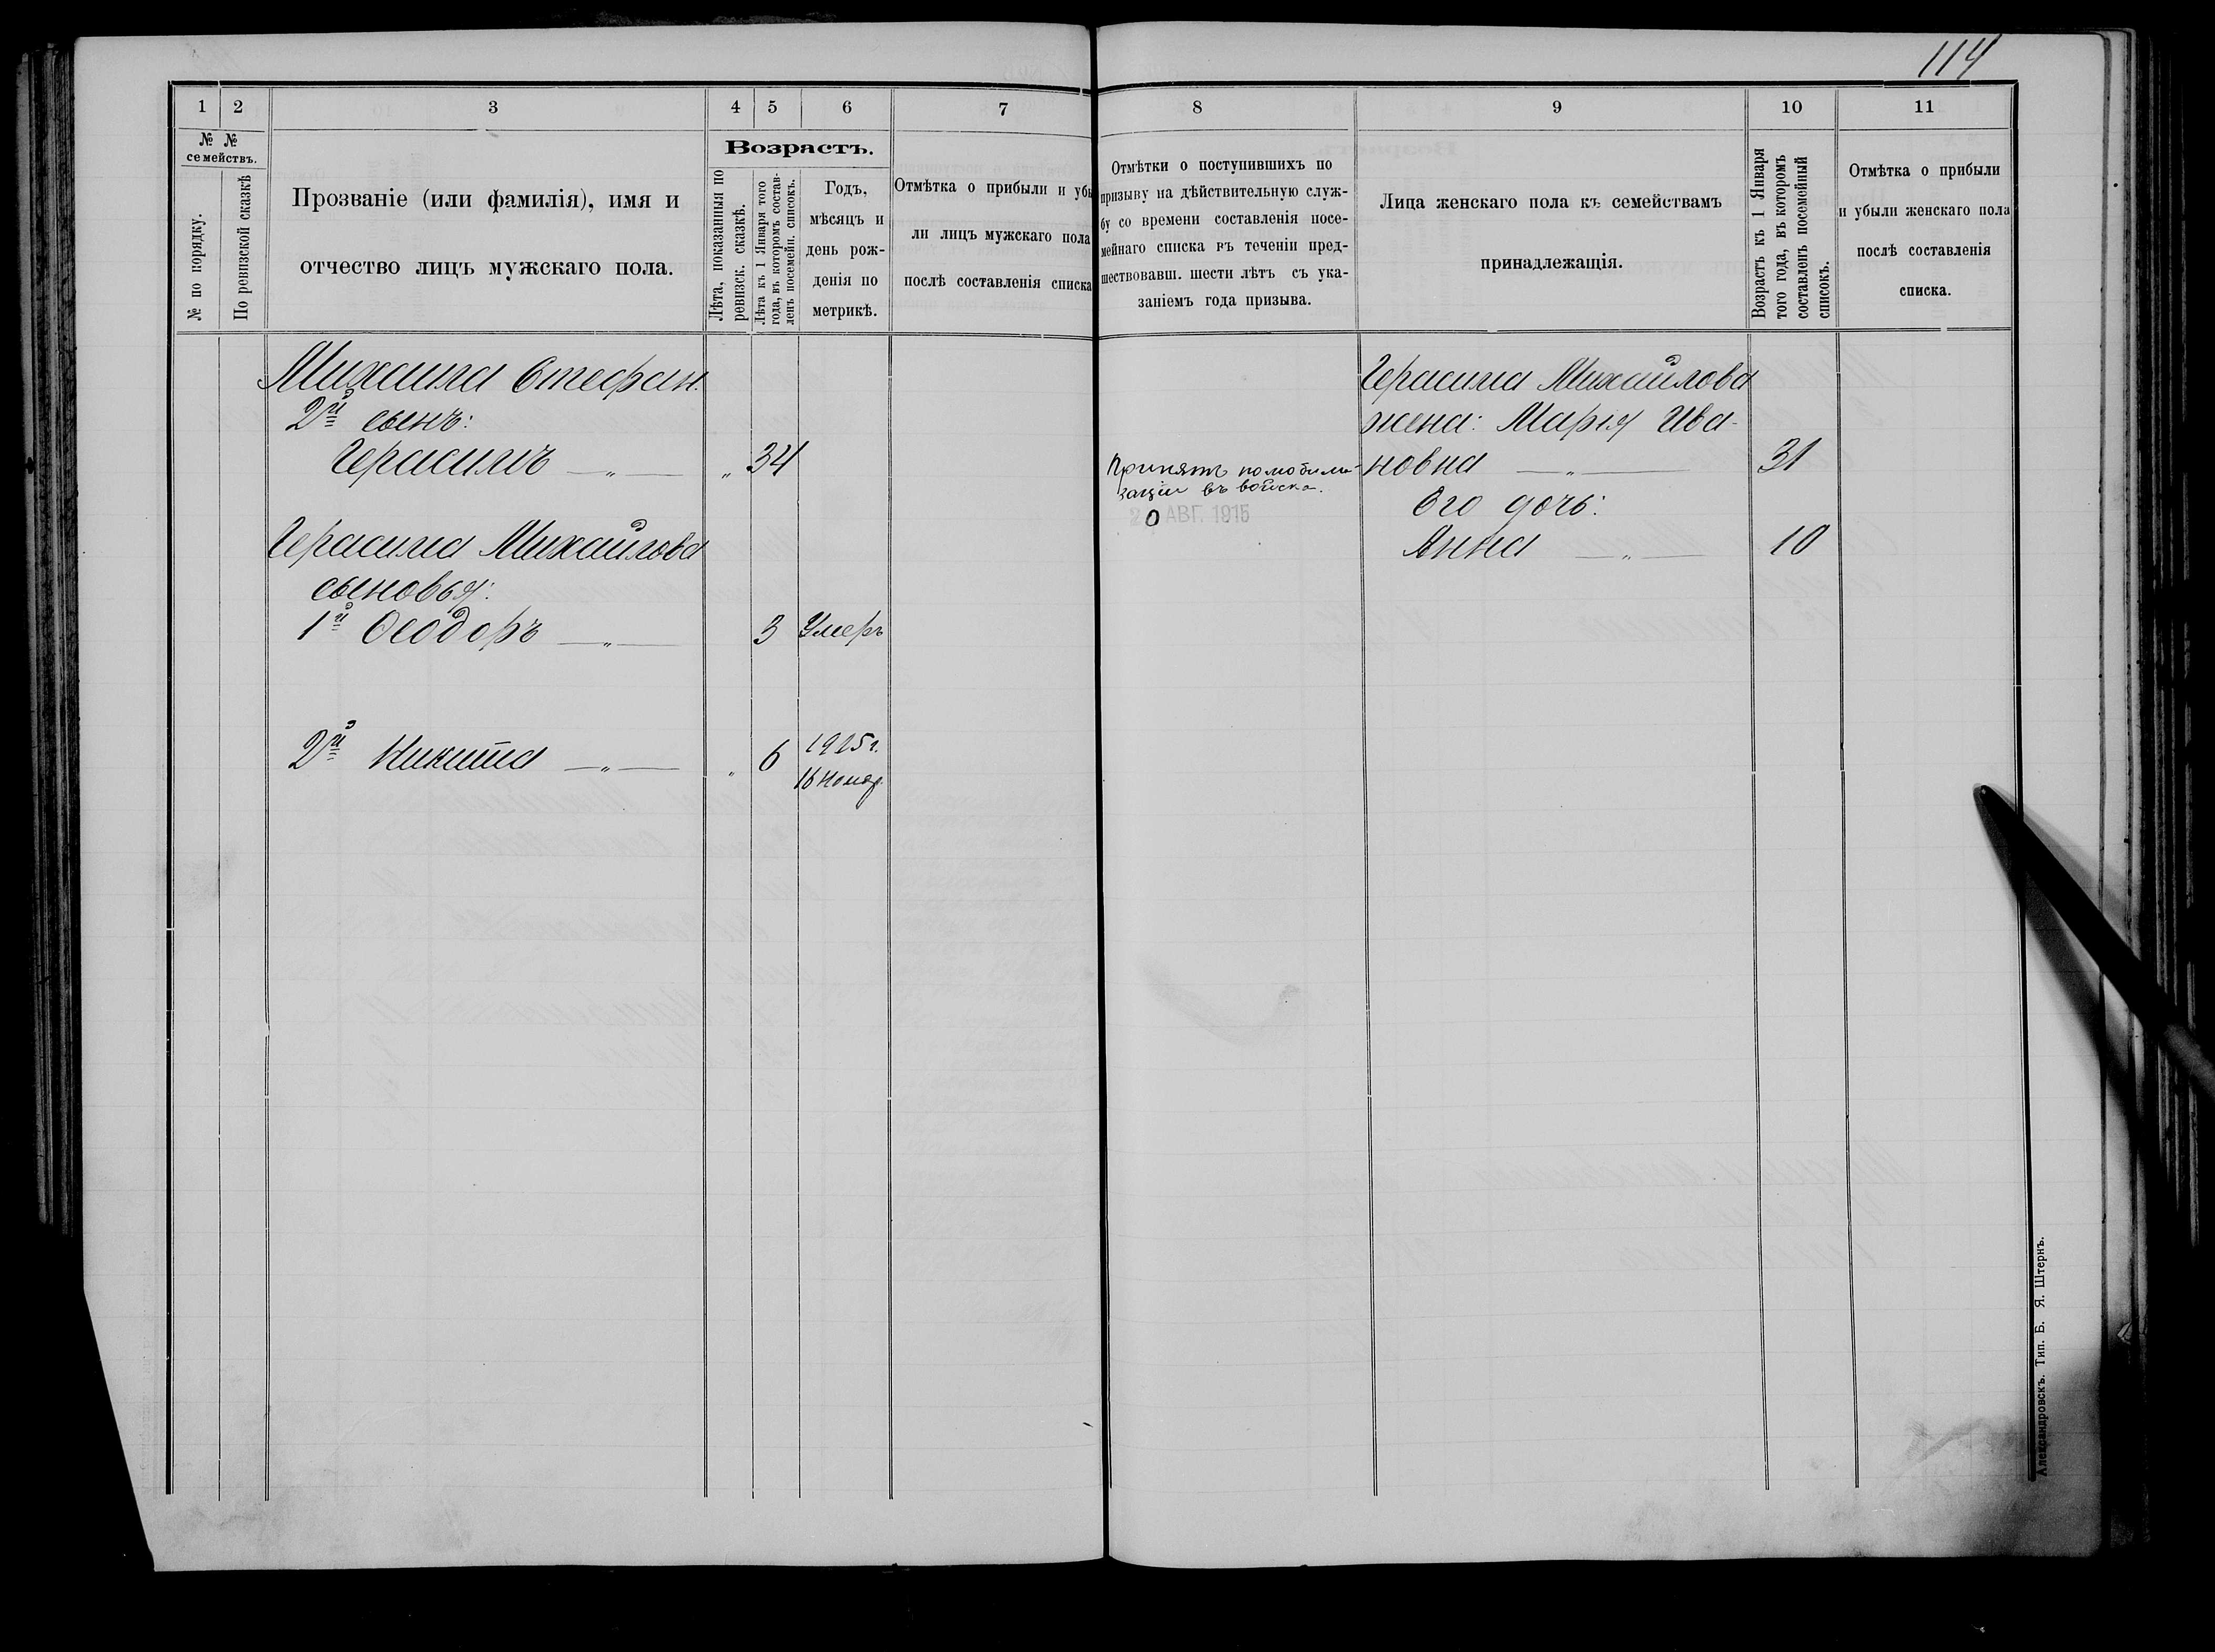 114
1 2 3 4 5 6 7
№ № семействъ.
№ по порядку.
По ревизской сказкѣ
Прозваніе (или фамилія), имя и
отчество лицъ мужскаго пола.
Возрастъ.
Лѣта, показанныя по
ревизск. сказкѣ.
Лѣта къ 1 Января того
года, въ которомъ состав-
ленъ посемейн. списокъ.
Годъ,
мѣсяцъ и
день рож-
денія по
метрикѣ.
Отмѣтка о прибыли и убы
ли лицъ мужскаго пола
послѣ составленія списка
Михаила Стефан.
2й сынъ:
Герасимъ — „ — „ 34
Герасима Михайлова
сыновья:
1й Ѳеодоръ — „ — 3 Умеръ
2й Никита — „ — „ 6
16 Нояб.
8 9 10 11
Отмѣтки о поступившихъ по
призыву на дѣйствительную служ-
бу со времени составленія посе-
мейнаго списка въ теченіи пред-
шествовавш. шести лѣтъ съ ука-
заніемъ года призыва.
Лица женскаго пола къ семействамъ
принадлежащія.
Возрастъ къ 1 Января
того года, въ которомъ
составленъ посемейный
списокъ.
Отмѣтка о прибыли
и убыли женскаго пола
послѣ составленія
списка.
Принятъ по мобили-
заціи въ войска.
АВГ. 1915
Герасима Михайлова
жена: Марія Ива-
новна — „ — 31
Его дочь:
Анна — „ — 10
Александровскъ. Тип. Б. Я. Штернъ.